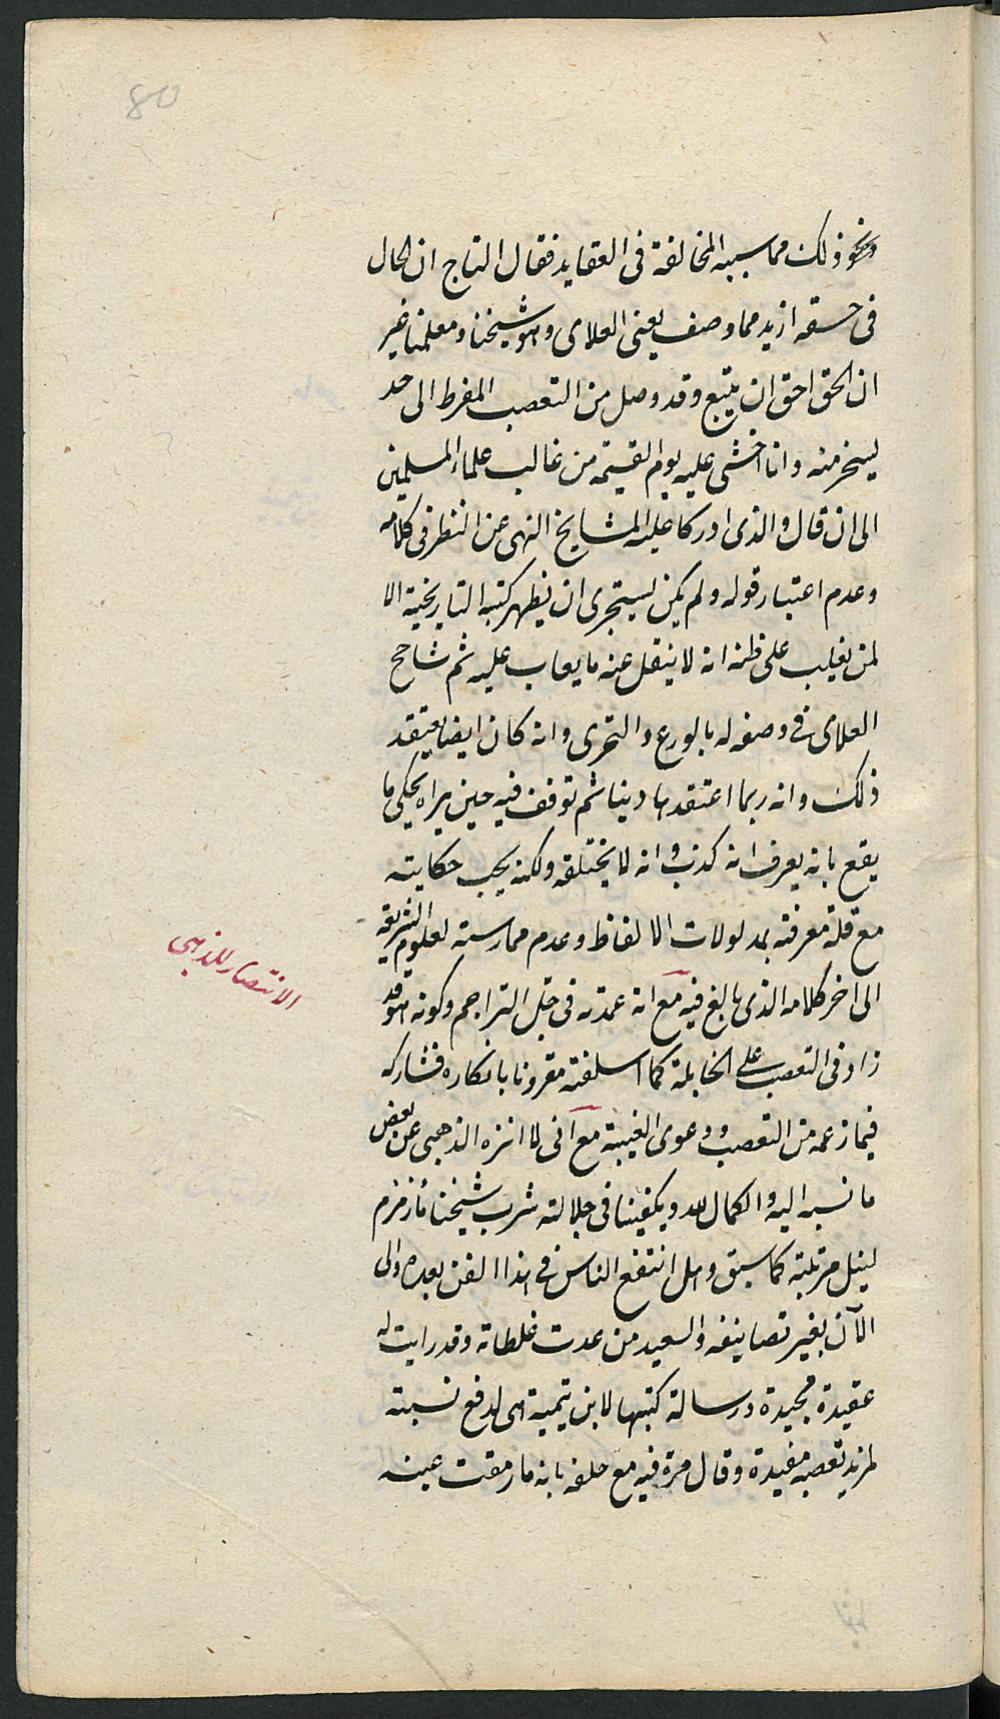 80
ونحو ذلك مما سببه المخالفة فى العقايد فقال التاج ان الحال
فى حقه ازيد مما وصف يعنى العلاى وهو شيخنا ومعلمنا غير
ان الحق احق ان يتبع وقد وصل من التعصب المفرط الى حد
يسخر منه وانا اخشى عليه يوم القيمة من غالب علماء المسلمين
الى ان قال والذى ادركنا عليه المشايخ النهى عن النظر فى كلامه
وعدم اعتبار قوله ولم يكن يستجرى ان يظهر كتبه التاريخية الا
لمن يغلب على ظنه انه لا ينقل عنه ما يعاب عليه ثم شاحح
العلاى فى وصفه له بالورع والتحرى وانه كان ايضا يعتقد
ذلك وانه ربما اعتقدها دينا ثم توقف فيه حين يراه يحكى ما
يقع بانه يعرف انه كذب وانه لا يختلقه ولكنه يحب حكايته
مع قلة معرفته بمدلولات الالفاظ وعدم ممارسته لعلوم الشريعة
الى اخر كلامه الذى بالغ فيه مع انه عمدته فى جل التراجم وكونه هو قد
زاد فى التعصب على الحنابلة كما اسلفته مقرونا بانكاره فشاركه
فيما زعمه من التعصب ودعوى الغيبة مع انى لا انزه الذهبى عن بعض
ما نسبه اليه والكمال لله ويكفينا فى جلالته شرب شيخنا ماء زمزم
لينل مرتبته كما سبق وهل انتفع الناس فى هذا الفن بعده والى
الآن بغير تصانيفه والسعيد من عدت غلطاته وقد رايت له
عقيدة مجيدة ورسالة كتبها لابن تيمية هى لدفع نسبته
لمزيد تعصبه مفيدة وقال مرة فيه مع حلفه بانه ما رمقت عينه
الانتصار للذهبى